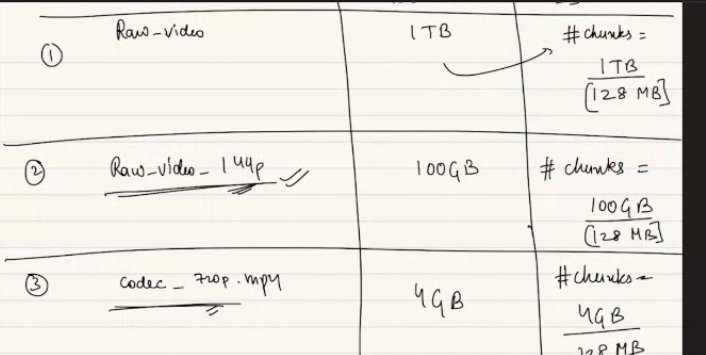 ① Raw-video 1TB # chunks =
1TB
[128 MB]
② Raw-video_144p 100GB # chunks =
100GB
[128 MB]
③ codec_720p.mp4 4GB # chunks =
4GB
128 MB